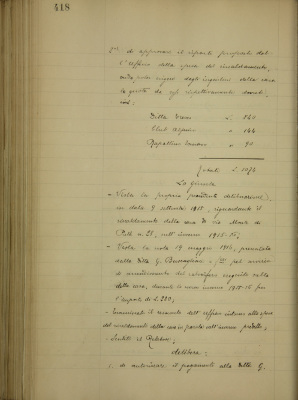 418
2° di approvare il riparto proposto dal-
l'Ufficio della spesa del riscaldamento,
onde poter esigere dagli inquilini della casa
le quote da essi rispettivamente dovute,
cioè:
Ditta L. 840
Club Alpino " 144
" 90
L. 1074
La Giunta
- Vista la propria precedente deliberazione,
in data 9 settembre 1915, riguardante il
riscaldamento della casa di via Monte di
Pietà n. 28, nell'inverno 1915-16;
- Vista la nota 19 maggio 1916, presentata
dalla Ditta G. per
di manutenzione del calorifero eseguita nella
detta casa, durante lo inverno 1915-16 per
l'importo di L. 220;
- Esaminati il riparto dell' relativo alla spesa
del riscaldamento della casa in parola nell'inverno predetto;
- Sentito il Relatore;
delibera:
1. di autorizzare il pagamento alla Ditta G.